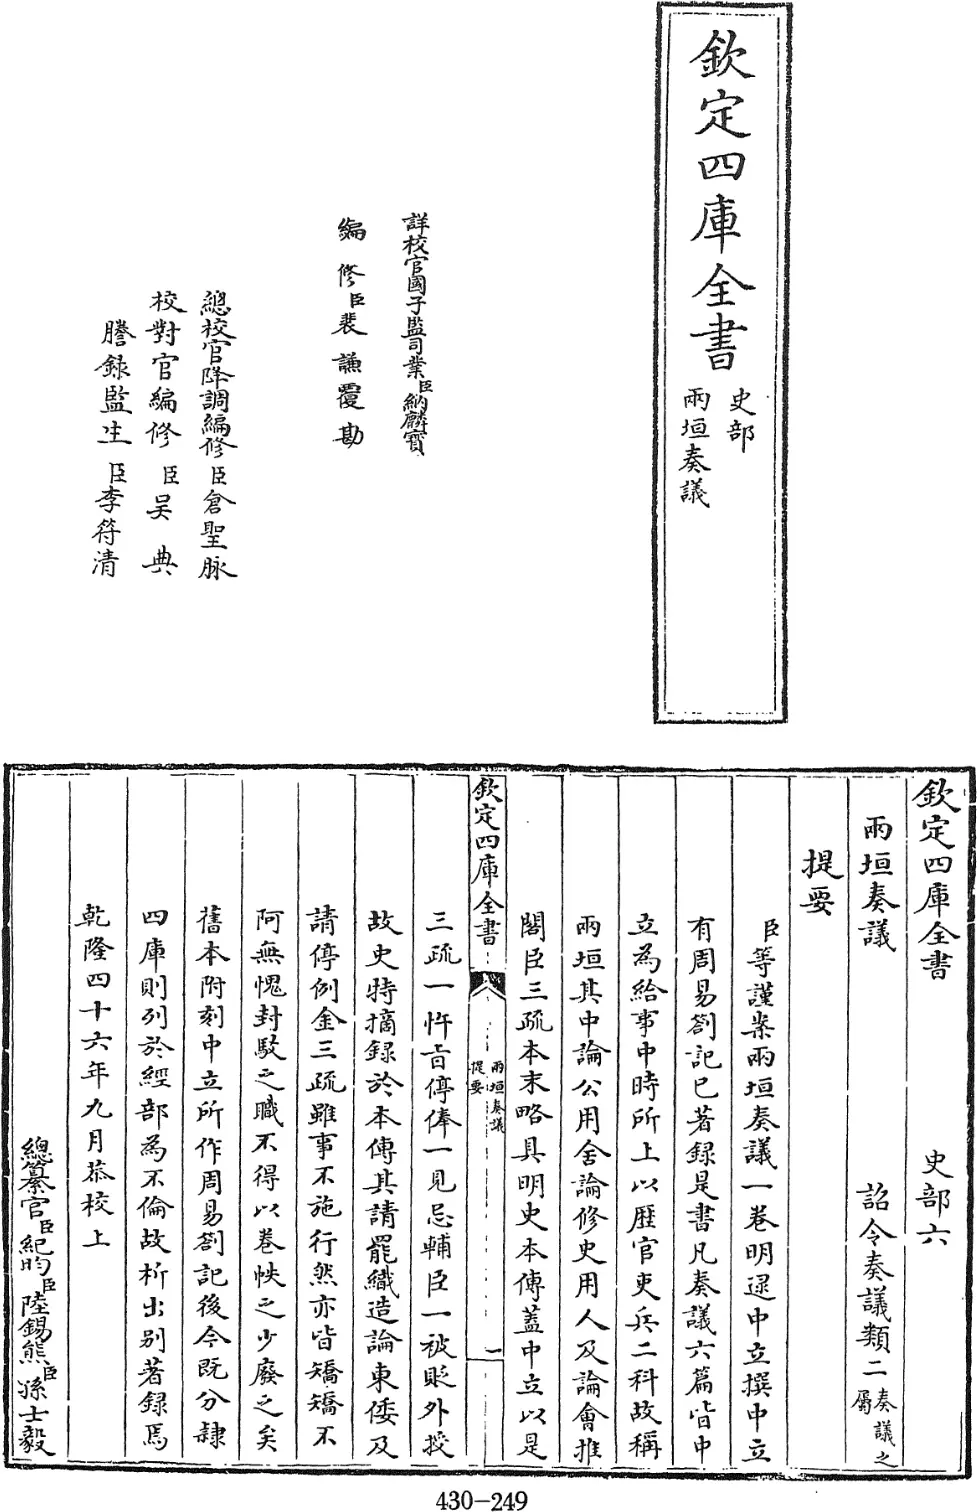 欽定四庫全書
史部
兩垣奏議
詳校官國子監司業臣納麟寶
編修臣裴謙覆勘
總校官降調編修臣倉聖脉
校對官編修臣吴典
謄錄監生臣李符清
欽定四庫全書　史部六
兩垣奏議　詔令奏議類二奏議之屬
提要
臣等謹案兩垣奏議一卷明逯中立撰中立
有周易劄記已著録是書凡奏議六篇皆中
立為給事中時所上以歴官吏兵二科故稱
兩垣其中論公用舍論修史用人及論㑹推
閣臣三疏本末略具明史本傳蓋中立以是
欽定四庫全書　兩垣奏議提要　一
三疏一忤㫖停俸一見忌輔臣一被貶外授
故史特摘録於本傳其請罷織造論東倭及
請停例金三疏雖事不施行然亦皆矯矯不
阿無愧封駁之職不得以巻帙之少廢之矣
舊本附刻中立所作周易劄記後今既分隷
四庫則列於經部為不倫故析出别著録焉
乾隆四十六年九月恭校上
總纂官臣紀昀臣陸錫熊臣孫士毅
430-249